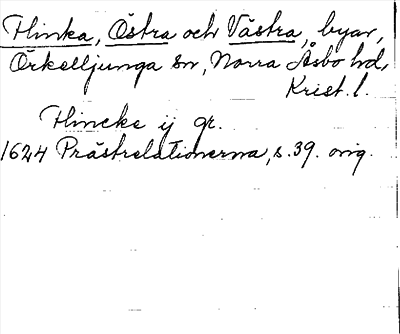 Flinka, Östra och Västra, byar,
Örkelljunga sn, Norra Åsbo hd,
Krist. l.
Flincke ij gr.
1624 Prästrelationerna, s. 39. orig.